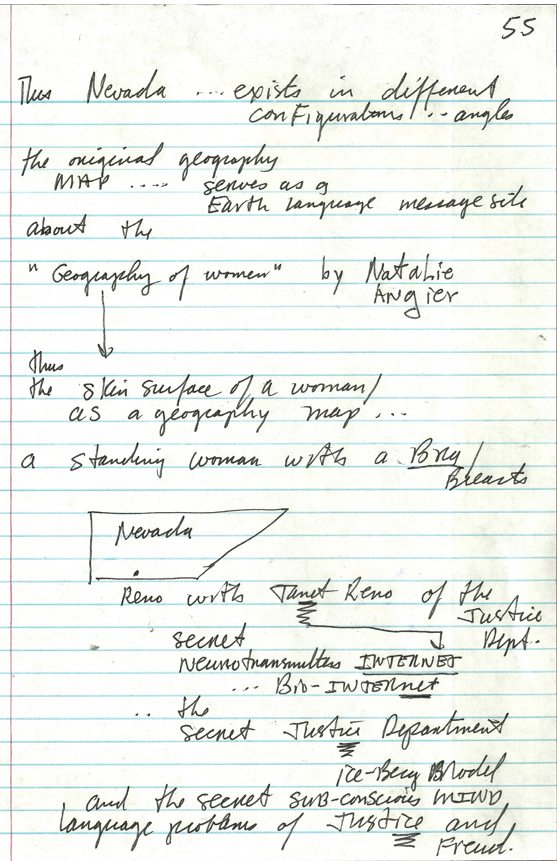 55
Thus Nevada .... exists in different
configurations/ .. angles
the original geography
MAP .... serves as a
Earth Language message site
about the
"Geography of women" by Natalie
Angier
thus
the skin surface of a woman/
as a geography map ...
a standing woman with a Bra/
Breasts
Nevada
Reno with Janet Reno of the
Justice
Dept.
secret
Neurotransmitters INTERNET
... Bio-INTERnet
.. the
secret Justice Department
ice-Berg Model
and the secret sub-conscious MIND
language problems of Justice and
Freud.